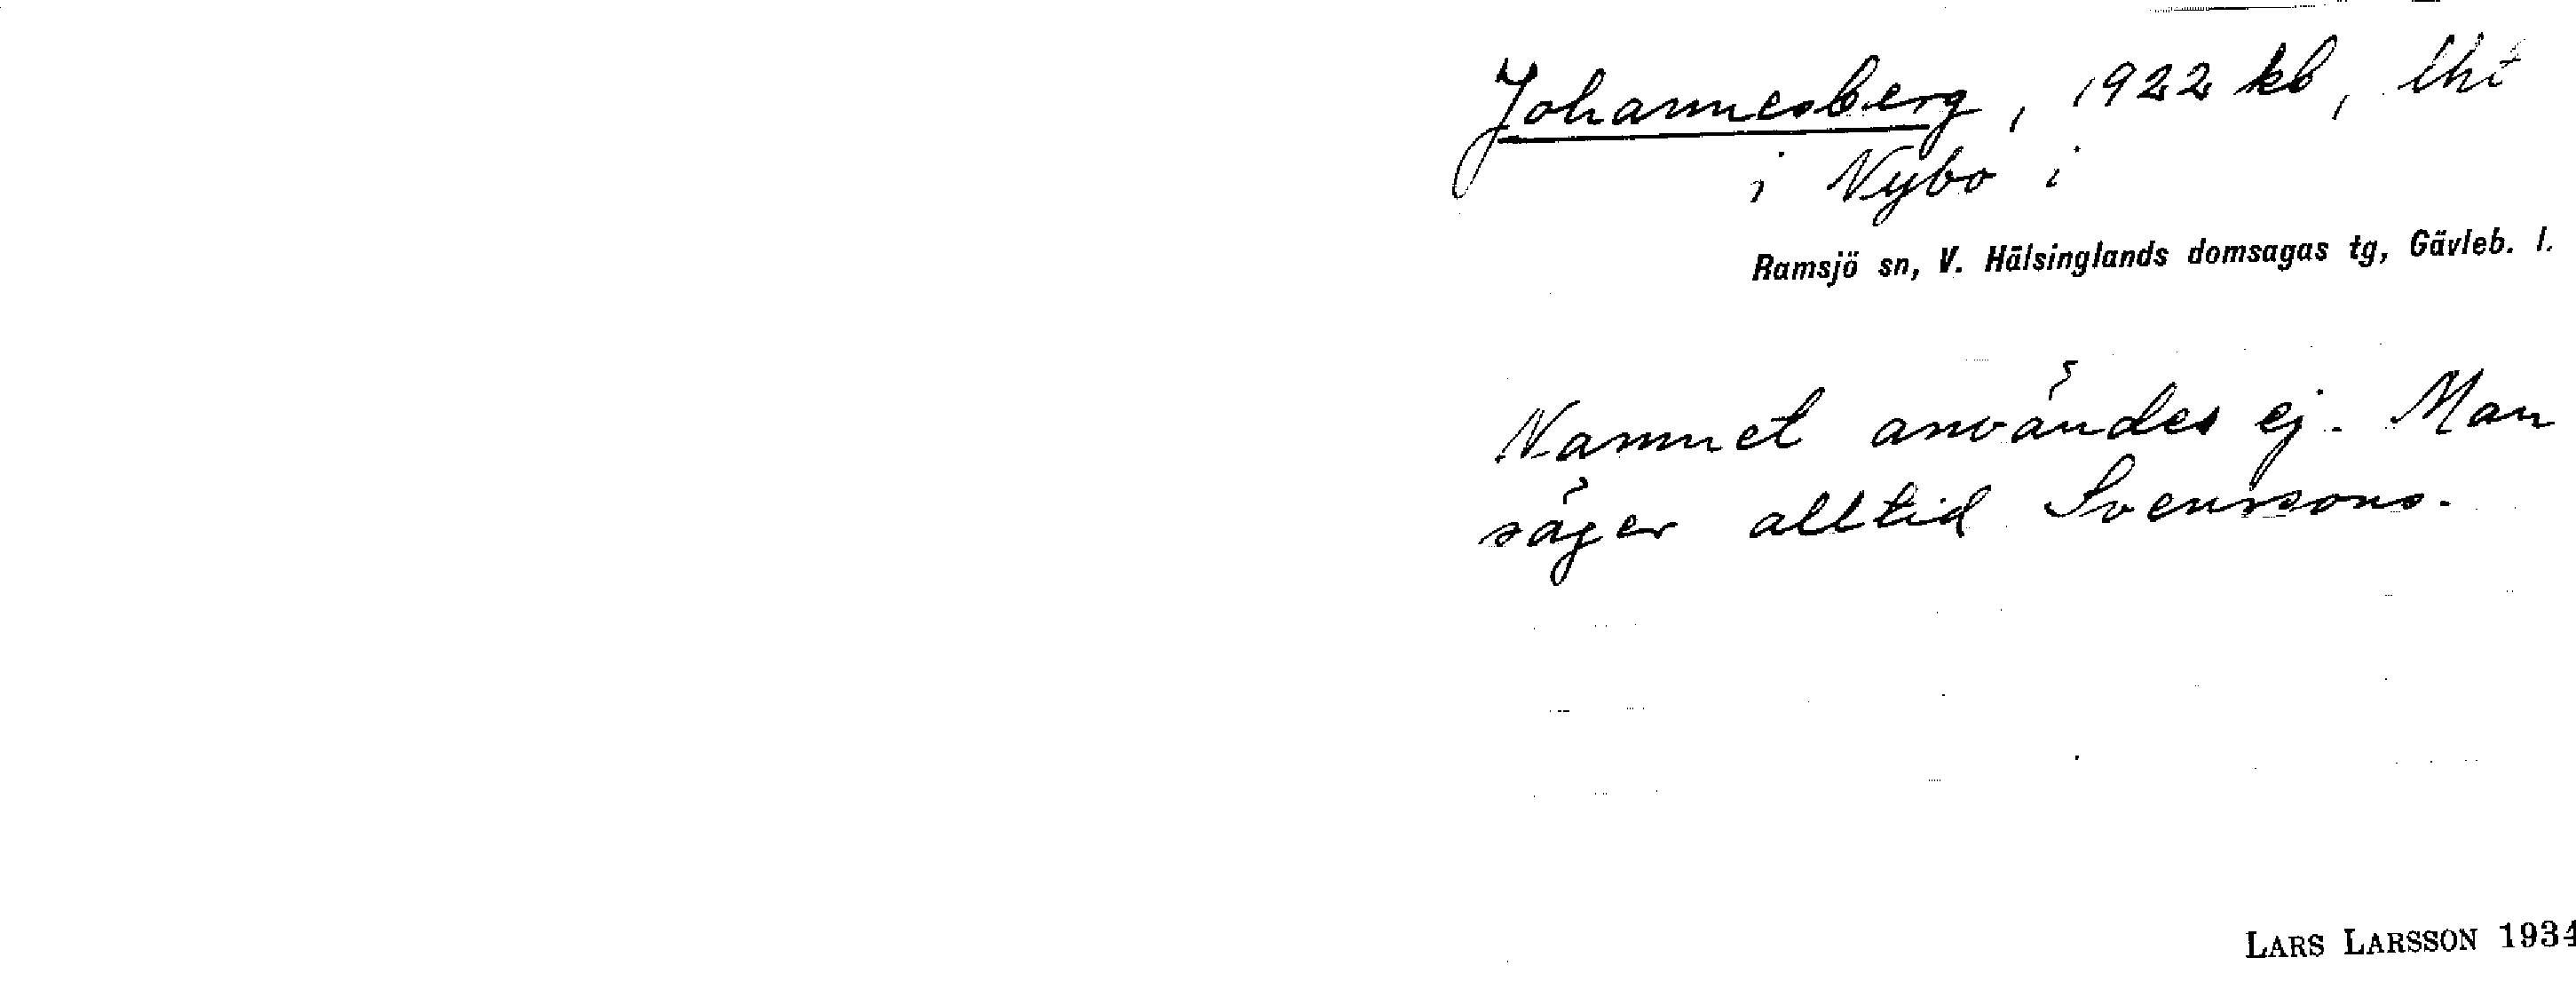 Johannesberg, 1922 kb, lht
i Nybo i
Ramsjö sn, V. Hälsinglands domsagas tg, Gävleb. l.
Namnet användes ej. Man
säger alltid Svenssons.
LARS LARSSON 1934